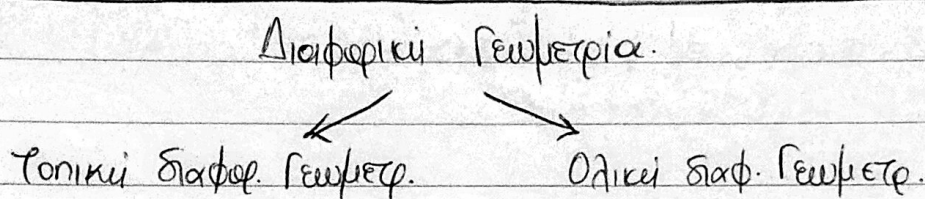 Διαφορική Γεωμετρία.
Τοπική διαφορ. Γεωμετρ. Ολική διαφ. Γεωμετρ.